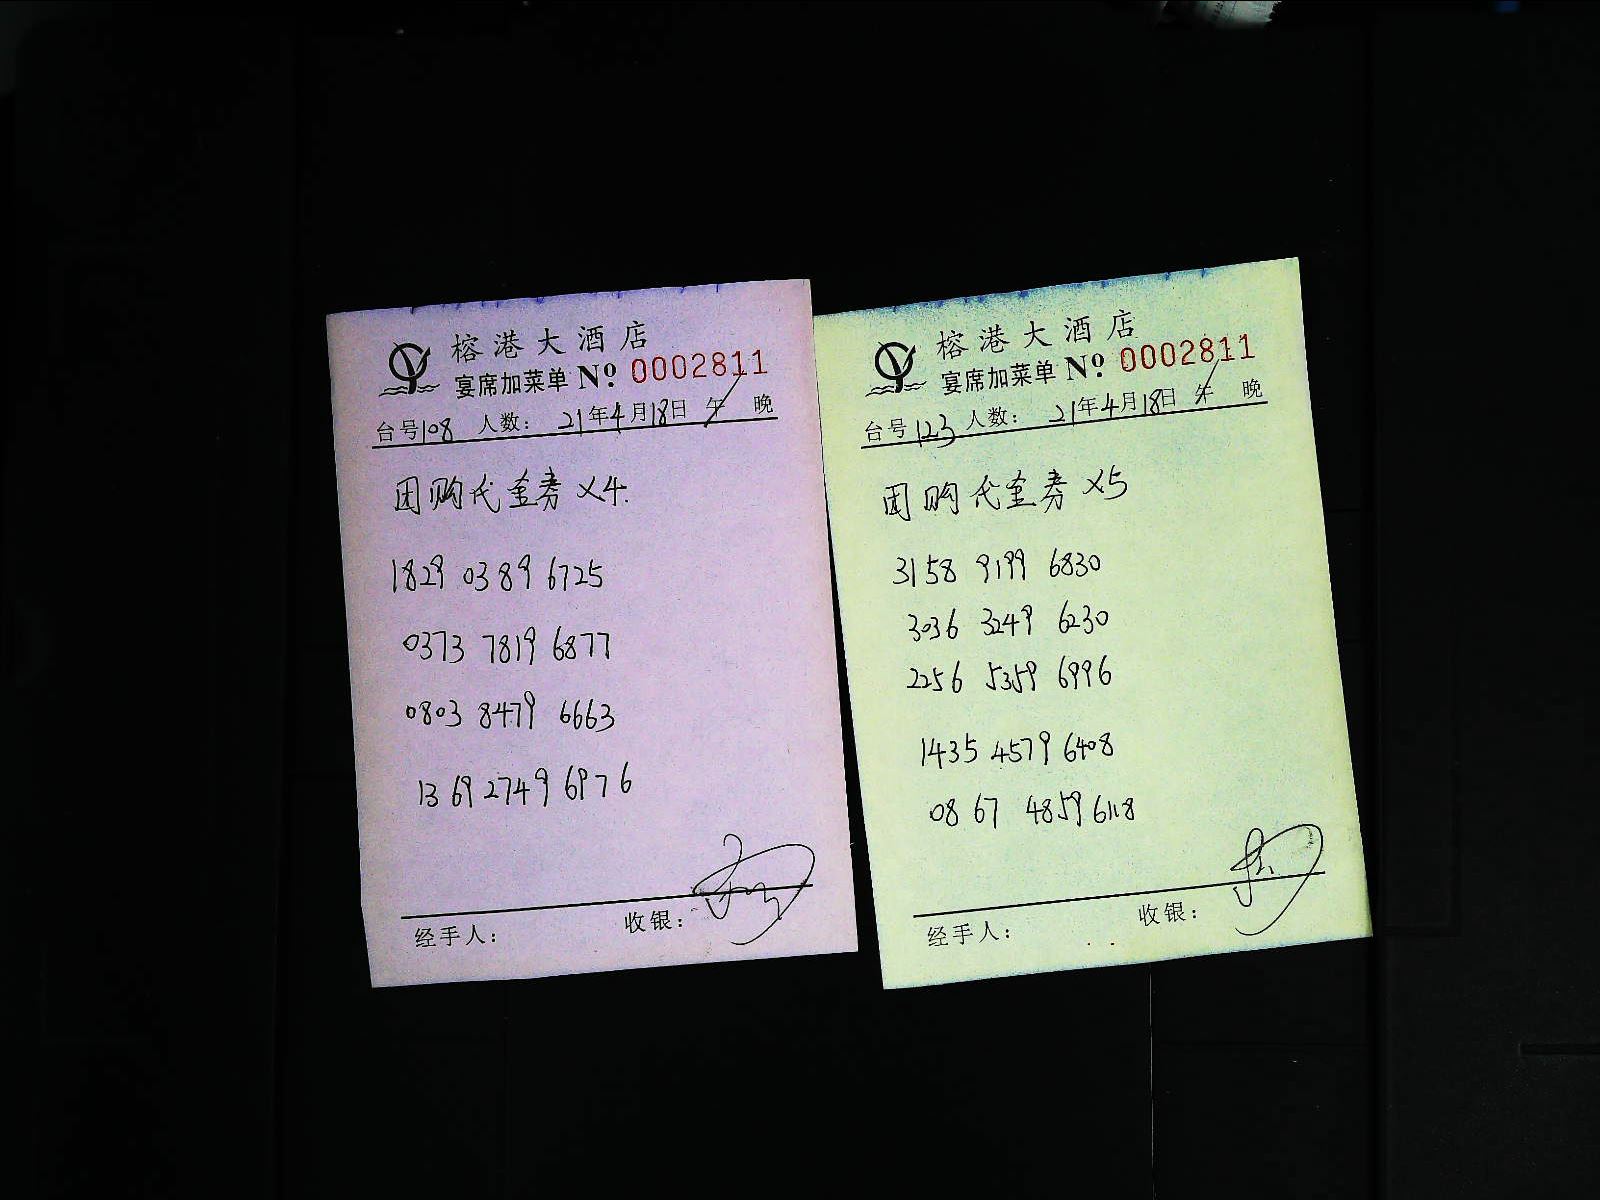 榕港大酒店
宴席加菜单 No 0002811
台号108 人数: 21年4月18日 午 晚
团购代金券 X4.
1829 0389 6725
0373 7819 6877
0803 8479 6663
1369 2749 6976
收银:
经手人:
榕港大酒店
宴席加菜单 No 0002811
台号123 人数: 21年4月18日 午 晚
团购代金券 X5
3158 9199 6830
3036 3249 6230
2256 5359 6996
1435 4579 6408
0867 4859 6118
收银:
经手人: